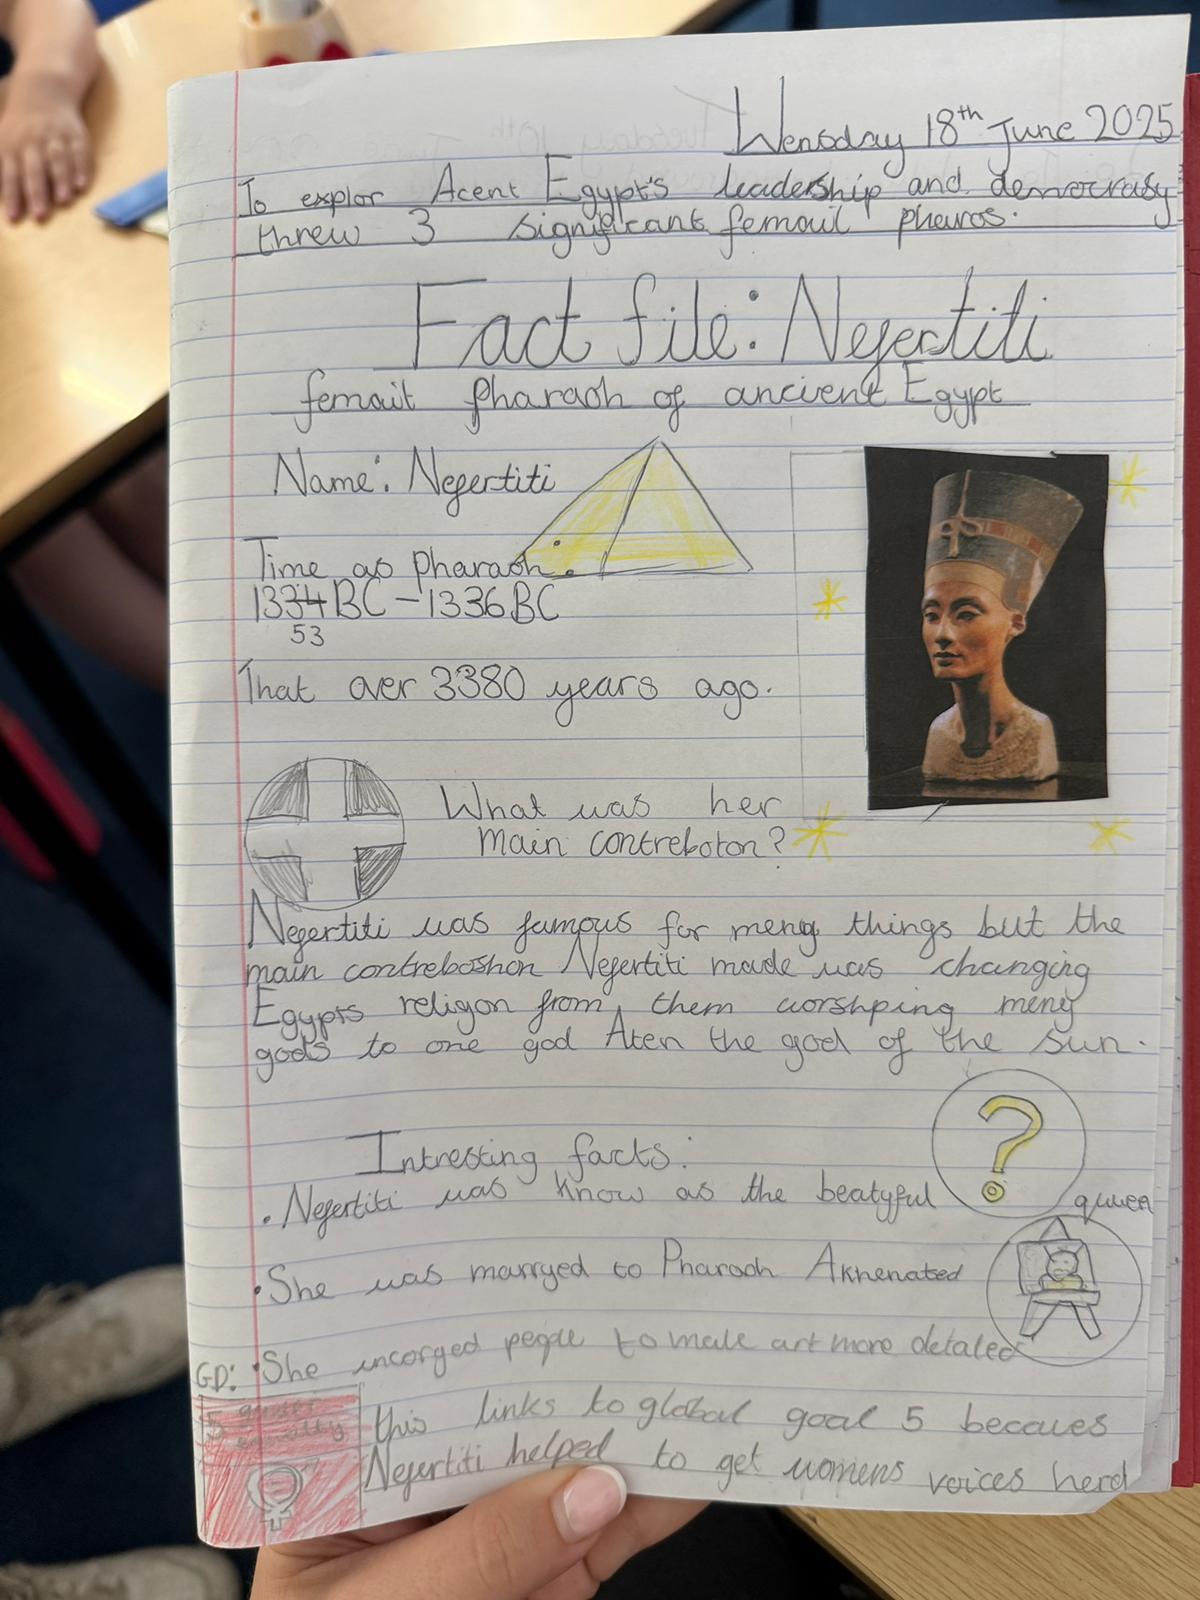 Wensday 18th June 2025
To explor Acent Egypt's leadership and democrasy
threw 3 significant femail pharos.
Fact file: Nefertiti
femail pharaoh of ancient Egypt
Name: Nefertiti
Time as pharaoh:
1334 BC - 1336 BC
53
That over 3380 years ago.
What was her
main contreboton?
Nefertiti was famous for meny things but the
main contreboshon Nefertiti made was changing
Egypts religon from them worshping meny
gods to one god Aten the god of the sun.
Intresting facts:
• Nefertiti was know as the beatyful quuen
• She was marryed to Pharaoh Aknenated
GD: • She incorged people to make art more detaled
5 gender equality
this links to global goal 5 becaues
Nefertiti helped to get womens voices herd